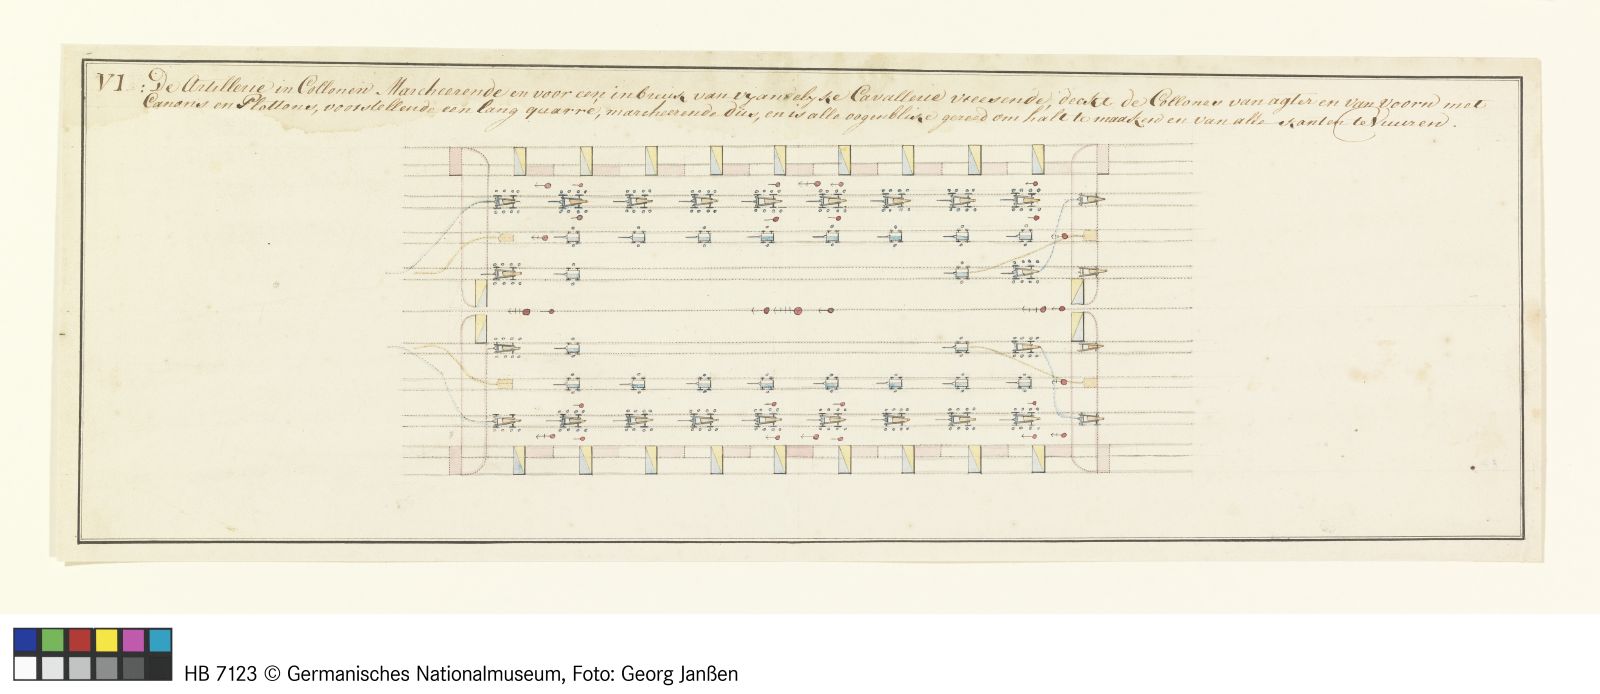 V1 : De Artillerie in Collonen Marcheerende en voor een inbreuk van vyandelyke Cavallerie vreesende, deckt de Collones van agter en van voorn met
Canons en Plottons, voorstellende een lang quarré, marcheerende dus, en is alle oogenblike gereed om halt te maaken en van alle kanten te Vuuren.
HB 7123 © Germanisches Nationalmuseum, Foto: Georg Janßen